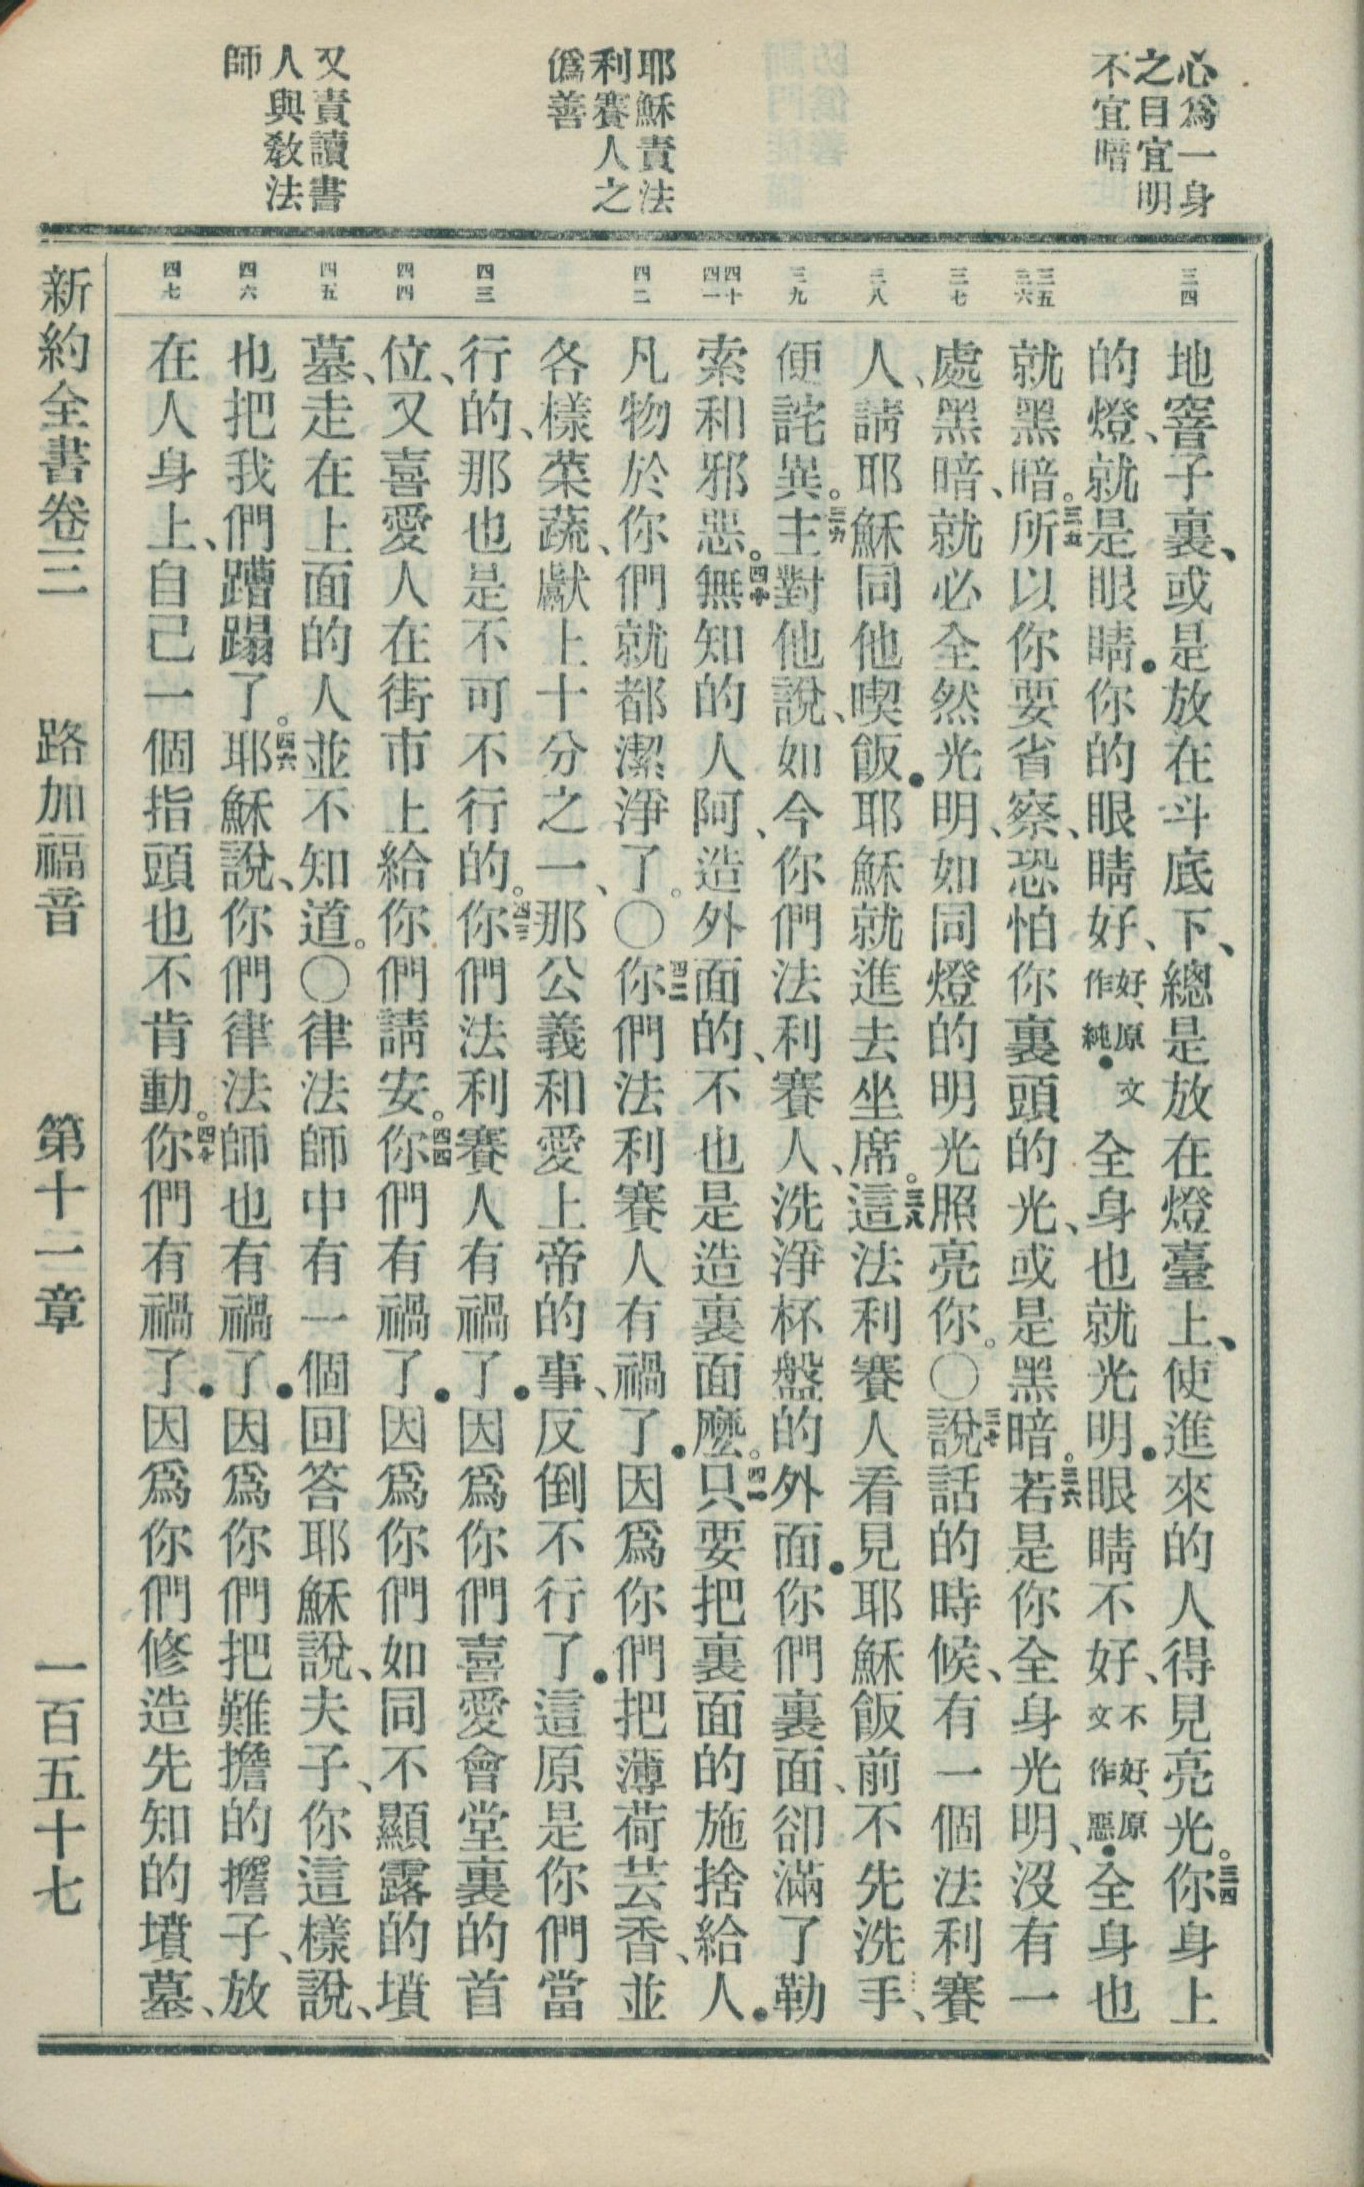 心爲一身
之目宜明
不宜暗
耶穌責法
利賽人之
僞善
又責讀書
人與教法
師
三四
三五
三六
三七
三八
三九
四十
四一
四二
四三
四四
四五
四六
四七
地窨子裏、或是放在斗底下、總是放在燈臺上、使進來的人得見亮光。三四你身上
的燈、就是眼睛．你的眼睛好、好、原文作純．全身也就光明．眼睛不好、不好、原文作惡．全身也
就黑暗。三五所以你要省察、恐怕你裏頭的光、或是黑暗。三六若是你全身光明、沒有一
處黑暗、就必全然光明、如同燈的明光照亮你。〇三七說話的時候、有一個法利賽
人、請耶穌同他喫飯．耶穌就進去坐席。三八這法利賽人看見耶穌飯前不先洗手、
便詫異。三九主對他說、如今你們法利賽人、洗淨杯盤的外面．你們裏面、卻滿了勒
索和邪惡。四十無知的人阿、造外面的、不也是造裏面麽。四一只要把裏面的施捨給人．
凡物於你們就都潔淨了。〇四二你們法利賽人有禍了．因爲你們把薄荷芸香、並
各樣菜蔬、獻上十分之一、那公義和愛上帝的事、反倒不行了．這原是你們當
行的、那也是不可不行的。四三你們法利賽人有禍了．因爲你們喜愛會堂裏的首
位、又喜愛人在街市上給你們請安。四四你們有禍了．因爲你們如同不顯露的墳
墓、走在上面的人並不知道。〇律法師中有一個回答耶穌說、夫子、你這樣說、
也把我們蹧蹋了。四六耶穌說、你們律法師也有禍了．因爲你們把難擔的擔子、放
在人身上、自己一個指頭也不肯動。四七你們有禍了．因爲你們修造先知的墳墓、
新約全書卷三 路加福音 第十一章 一百五十七